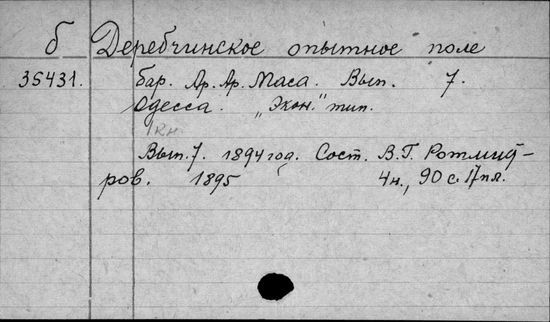 б Деребчинское опытное поле
35431. бар. Ар. Ар. Маса. Вып. 7.
Одесса. „Экон." тип.
1 кн.
Вып. 7. 1894 год. Сост. В. Г. Ротмист-
ров. 1895 4н., 90 с. 17 пл.